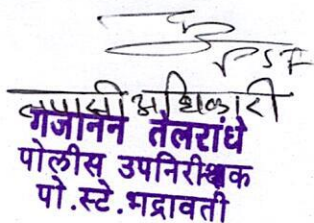 PSI
तपासी अधिकारी
गजानन तेलरांधे
पोलीस उपनिरीक्षक
पो.स्टे.भद्रावती